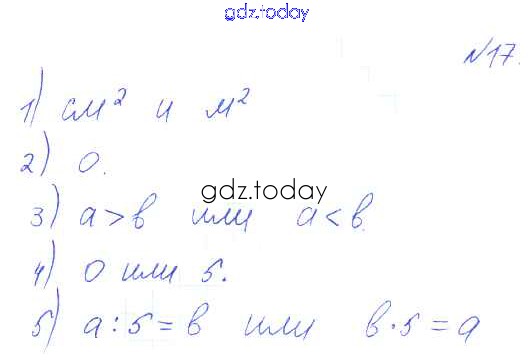 gdz.today
№17.
1) см² и м²
2) 0.
gdz.today
3) a>b или a<b.
4) 0 или 5.
5) a:5=b или b·5=a